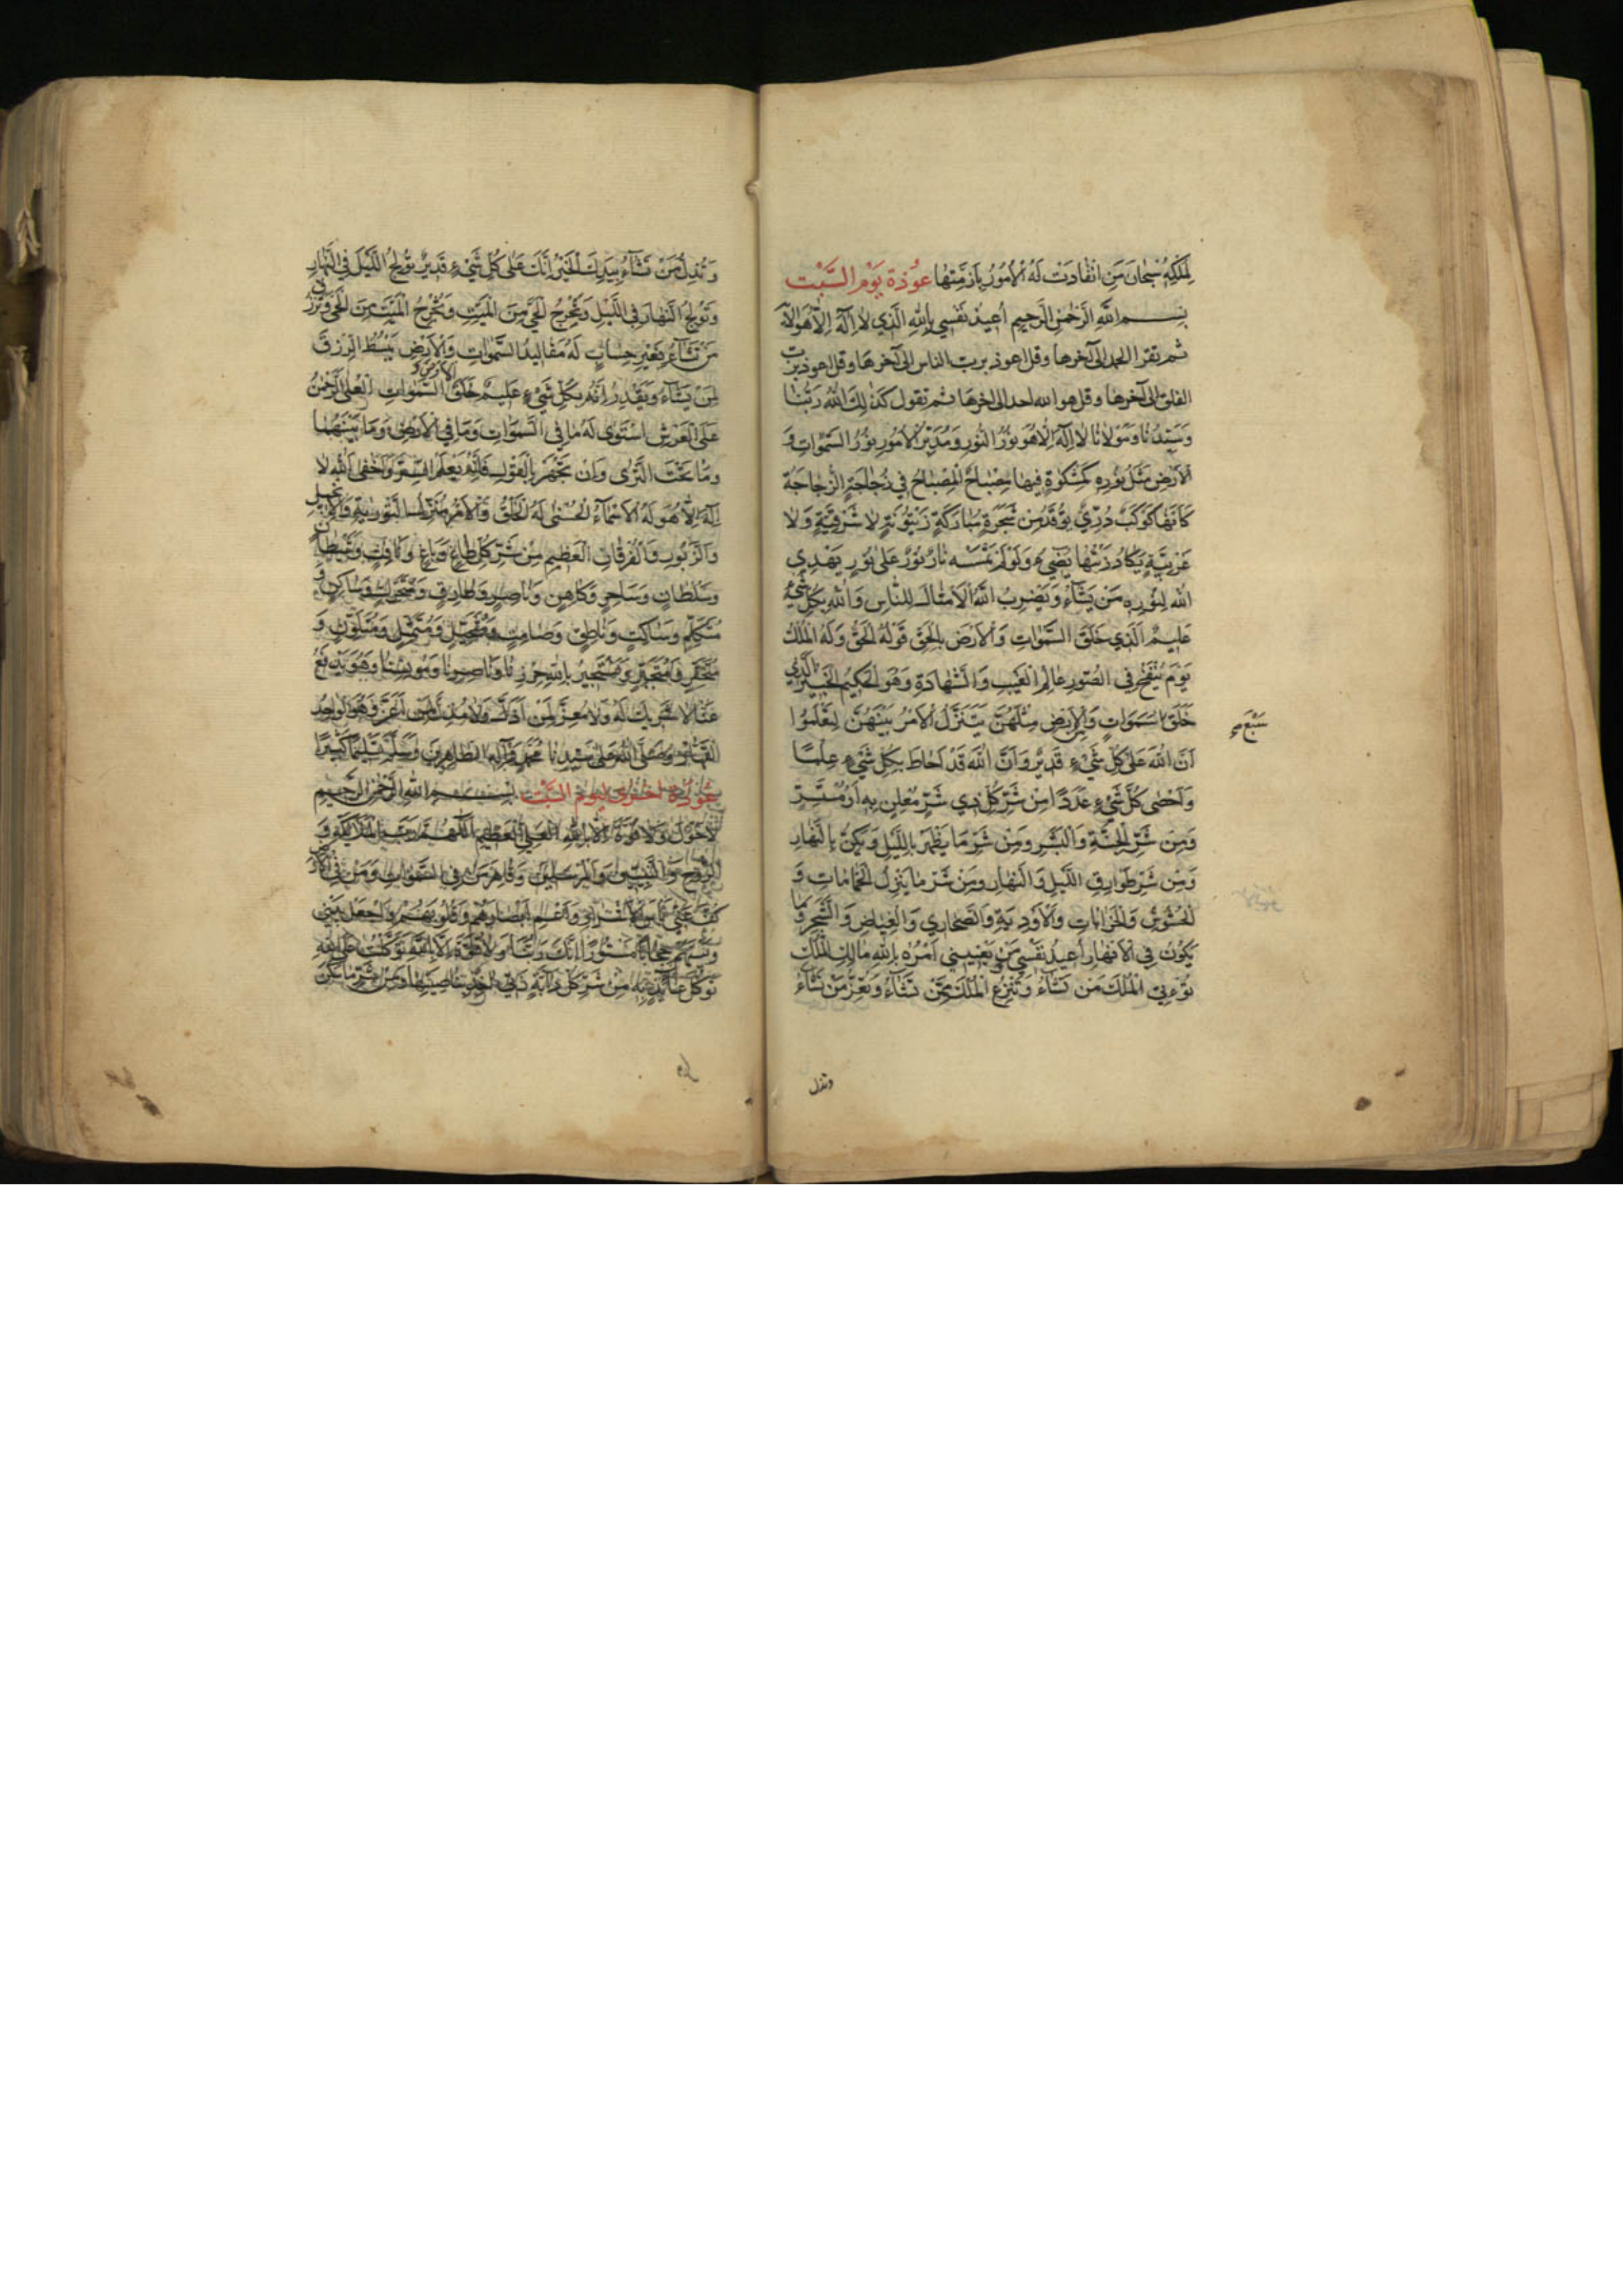 لِمَلَكِهِ سُبْحَانَ مَنِ انْقَادَتْ لَهُ الْأُمُورُ بِأَزِمَّتِهَا عُوذة يَوْم السَّبْت
بِسْمِ اللَّهِ الرَّحْمٰنِ الرَّحِيمِ أُعِيذُ نَفْسِي بِاللَّهِ الَّذِي لَا إِلَهَ إِلَّا هُوَ
ثم تقرا الحمد الى آخرها وقل اعوذ برب الناس الى آخرها وقل اعوذ برب
الفلق الى آخرها وقل هو الله احد الى اخرها ثم تقول كَذٰلِكَ اللهُ رَبُّنَا
وَسَيِّدُنَا وَمَوْلَانَا لَا اِلَهَ اِلَّا هُوَ نُورُ النُّورِ وَمُدَبِّرُ الْاُمُورِ نُورُ السَّمٰوَاتِ وَ
الْاَرْضِ مَثَلُ نُورِهِ كَمِشْكٰوةٍ فِيهَا مِصْبَاحٌ الْمِصْبَاحُ فِي زُجَاجَةٍ الزُّجَاجَةُ
كَاَنَّهَا كَوْكَبٌ دُرِّيٌّ يُوقَدُ مِنْ شَجَرَةٍ مُبَارَكَةٍ زَيْتُونَةٍ لَا شَرْقِيَّةٍ وَلَا
غَرْبِيَّةٍ يَكَادُ زَيْتُهَا يُضِيءُ وَلَوْ لَمْ تَمْسَسْهُ نَارٌ نُورٌ عَلَى نُورٍ يَهْدِي
اللهُ لِنُورِهِ مَنْ يَشَاءُ وَيَضْرِبُ اللهُ الْاَمْثَالَ لِلنَّاسِ وَاللهُ بِكُلِّ شَيْءٍ
عَلِيمٌ الَّذِي خَلَقَ السَّمٰوَاتِ وَالْاَرْضَ بِالْحَقِّ قَوْلُهُ الْحَقُّ وَلَهُ الْمُلْكُ
يَوْمَ يُنْفَخُ فِي الصُّورِ عَالِمُ الْغَيْبِ وَالشَّهَادَةِ وَهُوَ الْحَكِيمُ الْخَبِيرُ الَّذِي
خَلَقَ سَمَوَاتٍ وَمِنَ الْاَرْضِ مِثْلَهُنَّ يَتَنَزَّلُ الْاَمْرُ بَيْنَهُنَّ لِتَعْلَمُوا
سَبْعَ صح
اَنَّ اللهَ عَلَى كُلِّ شَيْءٍ قَدِيرٌ وَاَنَّ اللهَ قَدْ اَحَاطَ بِكُلِّ شَيْءٍ عِلْمًا
وَاَحْصَى كُلَّ شَيْءٍ عَدَدًا مِنْ شَرِّ كُلِّ ذِي شَرٍّ مُعْلِنٍ بِهِ اَوْ مُسِرٍّ
وَمِنْ شَرِّ الْجِنَّةِ وَالْبَشَرِ وَمِنْ شَرِّ مَا يَظْهَرُ بِاللَّيْلِ وَيَكُنُّ بِالنَّهَارِ
وَمِنْ شَرِّ طَوَارِقِ اللَّيْلِ وَالنَّهَارِ وَمِنْ شَرِّ مَا يَنْزِلُ الْحَمَّامَاتِ وَ
الْحُشُوشَ وَالْخَرَابَاتِ وَالْاَوْدِيَةَ وَالصَّحَارِي وَالْغِيَاضَ وَالشَّجَرَ وَمَا
يَكُونُ فِي الْاَنْهَارِ اُعِيذُ نَفْسِي وَمَنْ يَعْنِينِي اَمْرُهُ بِاللهِ مَالِكِ الْمُلْكِ
تُؤْتِي الْمُلْكَ مَنْ تَشَاءُ وَتَنْزِعُ الْمُلْكَ مِمَّنْ تَشَاءُ وَتُعِزُّ مَنْ تَشَاءُ
وتذل
وَتُذِلُّ مَنْ تَشَاءُ بِيَدِكَ الْخَيْرُ اِنَّكَ عَلَى كُلِّ شَيْءٍ قَدِيرٌ تُولِجُ اللَّيْلَ فِي النَّهَارِ
وَتُولِجُ النَّهَارَ فِي اللَّيْلِ وَتُخْرِجُ الْحَيَّ مِنَ الْمَيِّتِ وَتُخْرِجُ الْمَيِّتَ مِنَ الْحَيِّ وَتَرْزُقُ
مَنْ تَشَاءُ بِغَيْرِ حِسَابٍ لَهُ مَقَالِيدُ السَّمٰوَاتِ وَالْاَرْضِ يَبْسُطُ الرِّزْقَ
لِمَنْ يَشَاءُ وَيَقْدِرُ اِنَّهُ بِكُلِّ شَيْءٍ عَلِيمٌ خَلَقَ الْاَرْضَ وَ السَّمٰوَاتِ الْعُلَى الرَّحْمٰنُ
عَلَى الْعَرْشِ اسْتَوَى لَهُ مَا فِي السَّمٰوَاتِ وَمَا فِي الْاَرْضِ وَمَا بَيْنَهُمَا
وَمَا تَحْتَ الثَّرَى وَاِنْ تَجْهَرْ بِالْقَوْلِ فَاِنَّهُ يَعْلَمُ السِّرَّ وَاَخْفَى اَللهُ لَا
اِلَهَ اِلَّا هُوَ لَهُ الْاَسْمَاءُ الْحُسْنَى لَهُ الْخَلْقُ وَالْاَمْرُ مُنْزِلُ التَّوْرٰيةِ وَالْاِنْجِيلِ
وَالزَّبُورِ وَالْفُرْقَانِ الْعَظِيمِ مِنْ شَرِّ كُلِّ طَاغٍ وَبَاغٍ وَنَافِثٍ وَشَيْطَانٍ
وَسُلْطَانٍ وَسَاحِرٍ وَكَاهِنٍ وَنَاظِرٍ وَطَارِقٍ وَمُتَحَرِّكٍ وَسَاكِنٍ وَ
مُتَكَلِّمٍ وَسَاكِتٍ وَنَاطِقٍ وَصَامِتٍ وَمُتَخَيِّلٍ وَمُتَمَثِّلٍ وَمُتَلَوِّنٍ وَ
وَنَسْتَجِيرُ بِاللهِ حِرْزِنَا وَنَاصِرِنَا وَمُونِسِنَا وَهُوَ يَدْفَعُ
عَنَّا لَا شَرِيكَ لَهُ وَلَا مُعِزَّ لِمَنْ اَذَلَّ وَلَا مُذِلَّ لِمَنْ اَعَزَّ وَهُوَ الْوَاحِدُ
الْقَهَّارُ وَصَلَّى اللهُ عَلَى سَيِّدِنَا مُحَمَّدٍ وَآلِهِ الطَّاهِرِينَ وَسَلَّمَ تَسْلِيمًا كَثِيرًا
عُوذَة اُخْرَى لِيَوْم السَّبْت بِسْمِ اللهِ الرَّحْمٰنِ الرَّحِيمِ
لَا حَوْلَ وَلَا قُوَّةَ اِلَّا بِاللهِ الْعَلِيِّ الْعَظِيمِ اَللّٰهُمَّ رَبَّ الْمَلَائِكَةِ وَ
الرُّوحِ وَالنَّبِيِّينَ وَالْمُرْسَلِينَ وَقَاهِرَ مَنْ فِي السَّمٰوَاتِ وَمَنْ فِي الْاَرْضِ
كُفَّ عَنِّي بَأْسَ الْاَشْرَارِ وَاَعْمِ اَبْصَارَهُمْ وَقُلُوبَهُمْ وَاجْعَلْ بَيْنِي
وَبَيْنَهُمْ حِجَابًا اِنَّكَ رَبُّنَا وَلَا قُوَّةَ اِلَّا بِاللهِ تَوَكَّلْتُ عَلَى اللهِ
تَوَكُّلَ عَائِذٍ بِهِ مِنْ شَرِّ كُلِّ دَابَّةٍ رَبِّي اٰخِذٌ بِنَاصِيَتِهَا وَمِنْ شَرِّ مَا سَكَنَ